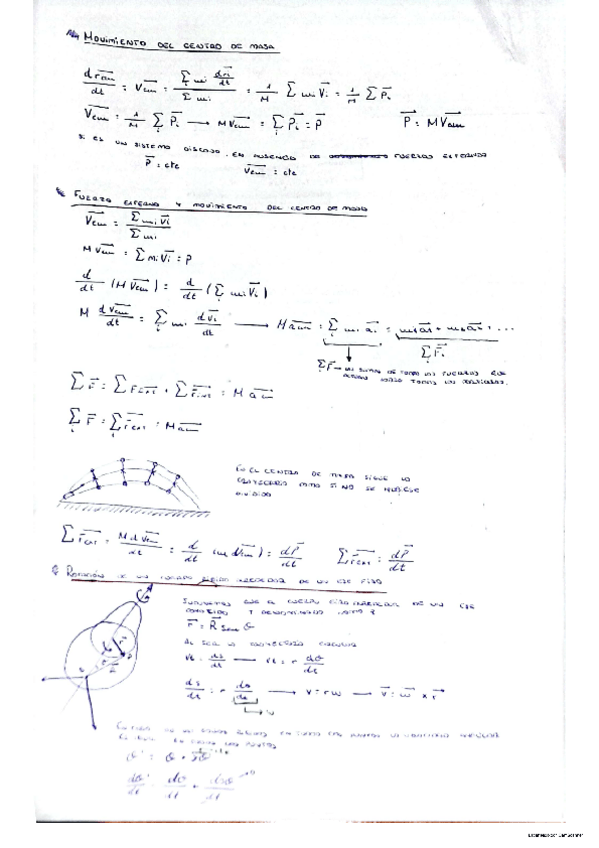 MOVIMIENTO DEL CENTRO DE MASA
d r⃗cm / dt = V⃗cm = Σ mi dr⃗i/dt / Σ mi = 1/M Σ mi V⃗i = 1/M Σ P⃗i
V⃗cm = 1/M Σ P⃗i → M V⃗cm = Σ P⃗i = P⃗ P⃗ = M V⃗cm
SI ES UN SISTEMA AISLADO, EN AUSENCIA DE FUERZAS EXTERNAS
P⃗ = cte V⃗cm = cte
FUERZA EXTERNA Y MOVIMIENTO DEL CENTRO DE MASA
V⃗cm = Σ mi V⃗i / Σ mi
M V⃗cm = Σ mi V⃗i = P
d/dt (M V⃗cm) = d/dt (Σ mi V⃗i)
M dV⃗cm/dt = Σ mi dV⃗i/dt → M a⃗cm = Σ mi a⃗i = m1a⃗1 + m2a⃗2 + ...
Σ F⃗i
Σ F⃗ → LA SUMA DE TODAS LAS FUERZAS QUE
ACTÚAN SOBRE TODAS LAS PARTÍCULAS.
Σ F⃗ = Σ F⃗ext + Σ F⃗int = M a⃗cm
Σ F⃗ = Σ F⃗ext = M a⃗cm
EL CENTRO DE MASA SIGUE LA
TRAYECTORIA COMO SI NO SE HUBIESE
DIVIDIDO
Σ F⃗ext = M dV⃗cm/dt = d/dt (M V⃗cm) = dP⃗/dt Σ F⃗ext = dP⃗/dt
ROTACIÓN DE UN CUERPO RÍGIDO ALREDEDOR DE UN EJE FIJO
SUPONEMOS QUE EL CUERPO GIRA ALREDEDOR DE UN EJE
CONOCIDO Y DENOMINADO
r⃗ = R⃗ sen θ
AL SER LA TRAYECTORIA CIRCULAR
Vt = ds/dt → Vt = r dθ/dt
ds/dt = r dθ/dt → V = rω → V⃗ = ω⃗ × r⃗
ω
EN TODOS LOS PUNTOS LA VELOCIDAD ANGULAR
θ' = θ +
dθ'/dt = dθ/dt +